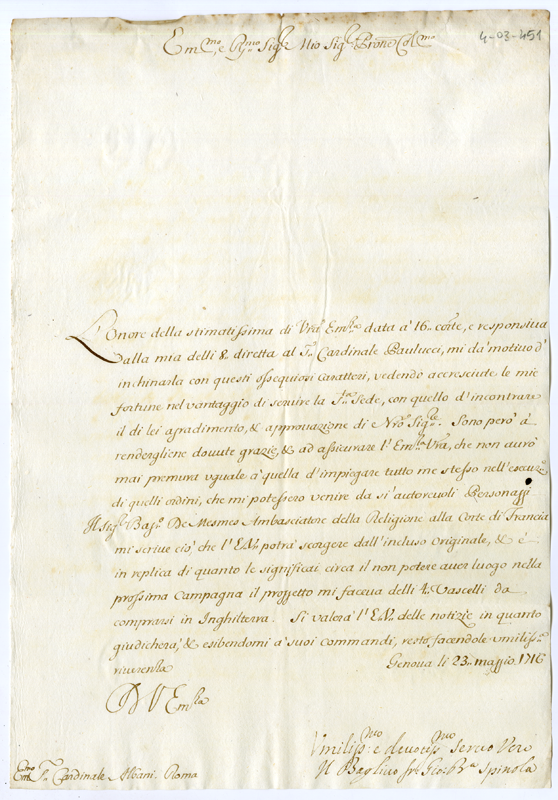 4-03-451
Em.mo e R.mo Sig.r Mio Sig.r Prone Col.mo
L'Onore della stimatissima di Vra Em.za data à 16. corte, e responsiva
dalla mia delli 8. diretta al S.r Cardinale Paulucci, mi da' motivo d'
inchinarla con questi ossequiosi caratteri, vedendo accresciute le mie
fortune nel vantaggio di servire la S.ta Sede, con quello d'incontrare
il di lei agradimento, & approvazione di Nro Sig.re Sono però à
rendergliene dovute grazie, & ad assicurare l'Em.za Vra, che non aurò
mai premura uguale à quella d'impiegare tutto me stesso nell'esecuz.e
di quelli ordini, che mi potessero venire da sì autorevoli Personaggi
Il Sig.r Bag.o De Mesmes Ambasciatore della Religione alla Corte di Francia
mi scrive ciò, che l'E.V. potrà scorgere dall'incluso Originale, & è
in replica di quanto le significai circa il non potere aver luogo nella
prossima Campagna il progetto mi faceva delli 4. Vascelli da
comprarsi in Inghilterra. Si valerà l'E.V. delle notizie in quanto
giudicherà, & esibendomi à suoi commandi, resto facendole umiliss.a
riverenza Genova li 23. maggio 1716
D V Em.za
Umiliss.mo e devotiss.mo servo Vero
Il Baglivo frà Gio: B.a Spinola
Em.mo S.r Cardinale Albani Roma